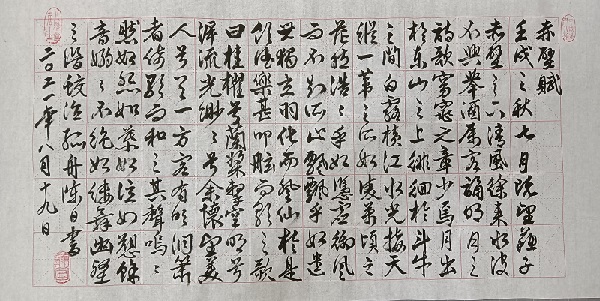 赤壁賦
壬戌之秋七月既望蘇子
赤壁之下清風徐來水波
不興舉酒屬客誦明月之
詩歌窈窕之章少焉月出
於東山之上徘徊於斗牛
之間白露橫江水光接天
縱一葦之所如凌萬頃之
茫然浩〻乎如憑虛御風
而不知所止飄飄乎如遺
世獨立羽化而登仙於是
飲酒樂甚扣舷而歌之歌
曰桂櫂兮蘭槳擊空明兮
溯流光渺〻兮余懷望美
人兮天一方客有吹洞簫
者倚歌而和之其聲嗚〻
然如怨如慕如泣如訴餘
音嫋〻不絕如縷舞幽壑
之潛蛟泣孤舟 陳日書
二〇二一年八月十九日